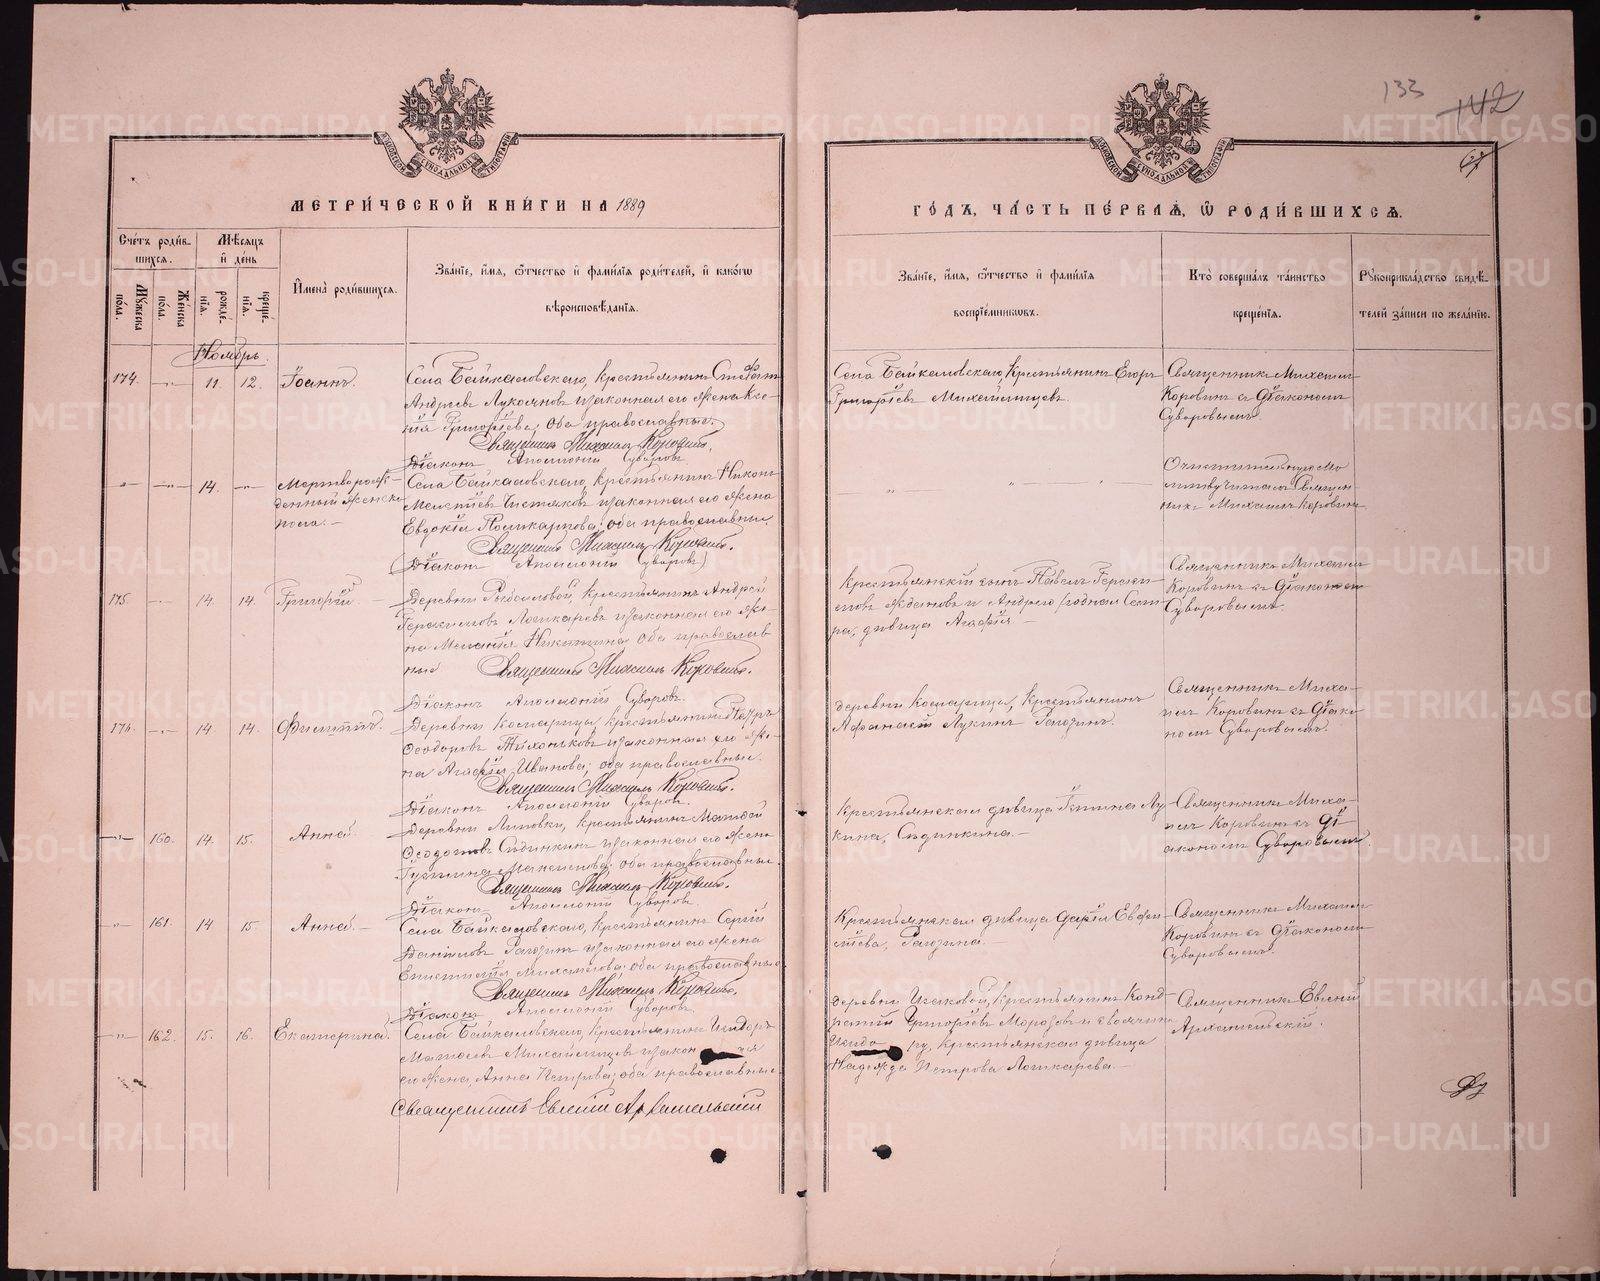 133
142
МОСКОВСКОЙ СУНОДАЛЬНОЙ ТИПОГРАФІИ
МОСКОВСКОЙ СУНОДАЛЬНОЙ ТИПОГРАФІИ
МЕТРИ́ЧЕСКОЙ КНИ́ГИ НА 1889
ГО́ДЪ, ЧА́СТЬ ПЕ́РВАѦ, Ѡ҆ РОДИ́ВШИХСѦ.
Сче́тъ роди́в-
шихсѧ.
Мꙋ́жеска
по́ла.
Же́нска
по́ла.
Мѣ́сѧцъ
и҆ де́нь
рожде́-
нїѧ.
креще́-
нїѧ.
И҆мена̀ роди́вшихсѧ.
Зва́нїе, и҆́мѧ, ѻ҆́тчество и҆ фами́лїѧ роди́телей, и҆ како́гѡ
вѣроисповѣ́данїѧ.
Зва́нїе, и҆́мѧ, ѻ҆́тчество и҆ фами́лїѧ
воспрїе́мникѡвъ.
Кто̀ соверша́лъ та́инство
креще́нїѧ.
Рꙋкоприкла́дство свидѣ́-
телей за́писи по жела́нїю.
Ноябрь.
174. —„— 11. 12. Іоаннъ.
Села Байкаловскаго, крестьянинъ Стефанъ
Андреевъ Лукояновъ и законная его жена Ксе-
нія Григоріева; оба православные.
Священникъ Михаилъ Коровинъ.
Діаконъ Аполлоній Суворовъ
Села Байкаловскаго, Крестьянинъ Егоръ
Григоріевъ Михайлищевъ.
Священникъ Михаилъ
Коровинъ съ Діакономъ
Суворовымъ
—„— —„— 14. —„— Мертворож-
денный женска
пола. —
Села Байкаловскаго, крестьянинъ Никонъ
Мелетіевъ Чистяковъ и законная его жена
Евдокія Поликарпова; оба православные.
Священникъ Михаилъ Коровинъ.
(Діаконъ Аполлоній Суворовъ)
Очистительную мо-
литву читалъ Священ-
никъ Михаилъ Коровинъ
175. —„— 14. 14. Григорій. —
Деревни крестьянинъ Андрей
Герасимовъ Лошкаревъ и законная его же-
на Меланія Никитина; оба православ-
ные
Священникъ Михаилъ Коровинъ.
Діаконъ Аполлоній Суворовъ.
Крестьянскій сынъ Павелъ Гераси-
мовъ Ждановъ и Андрею родная сест-
ра, дѣвица Агафія —
Священникъ Михаилъ
Коровинъ съ Діакономъ
Суворовымъ.
176. —„— 14. 14. Филиппъ.
Деревни Комарицы, крестьянинъ
Ѳеодоровъ и законная его же-
на Агафія Иванова; оба православные.
Священникъ Михаилъ Коровинъ.
Діаконъ Аполлоній Суворовъ.
деревни Комарица, Крестьянинъ
Афанасій Лукинъ Рагозинъ.
Священникъ Миха-
илъ Коровинъ съ Діако-
номъ Суворовымъ.
—„— 160. 14. 15. Анна.
Деревни Липовки, крестьянинъ Матвей
Ѳеодотовъ Сединкинъ и законная его жена
оба православные.
Священникъ Михаилъ Коровинъ.
Діаконъ Аполлоній Суворовъ.
Крестьянская дѣвица Лу-
кина, Сединкина. —
Священникъ Миха-
илъ Коровинъ съ Ді-
акономъ Суворовымъ.
—„— 161. 14 15. Анна. —
Села Байкаловскаго, крестьянинъ Сергій
Даніиловъ Рагозинъ и законная его жена
Епистимія Михайлова; оба православные.
Священникъ Михаилъ Коровинъ.
Діаконъ Аполлоній Суворовъ.
Крестьянская дѣвица Дарія Евфи-
міева, Рагозина.
Священникъ Михаилъ
Коровинъ съ Діакономъ
Суворовымъ.
—„— 162. 15. 16. Екатерина.
Села Байкаловскаго, крестьянинъ Исидоръ
Матѳеевъ Михайлищевъ и закон ная
его жена, Анна Петрова; оба православные
Священникъ Евгеній Архангельскій
деревни Исаковой, крестьянинъ Конд-
ратій Григоріевъ Морозовъ и свояченица
Исидо ру, крестьянская дѣвица
Надежда Петрова Лошкарева. —
Священникъ Евгеній
Архангельскій.
METRIKI.GASO-URAL.RU